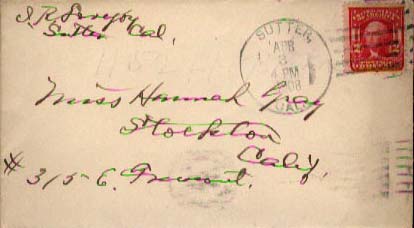 Sutter Cal.
SUTTER,
APR
3
4 PM
CAL.
2 2
Miss Hannah Gray
Stockton
Calif.
# 315 E. Fremont.